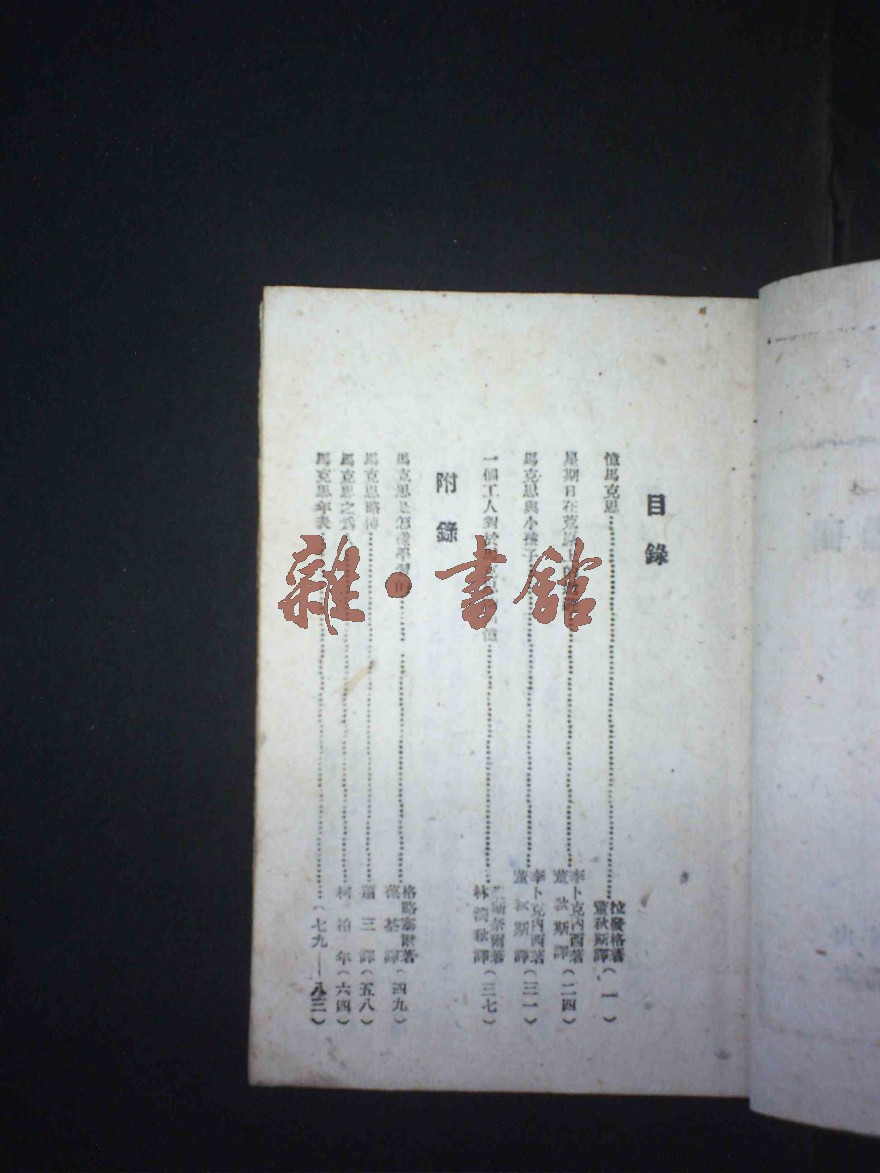 目錄
憶馬克思 拉發格著 董秋斯譯(一)
星期日在荒原上的 李卜克內西著 董秋斯譯(二四)
馬克思與小孩子 李卜克內西著 董秋斯譯(三一)
一個工人對於馬克思 憶 斯奈爾著 林濱秋譯(三七)
附錄
馬克思是怎樣學習的 格略塞爾著 譯(四九)
馬克思略傳 蕭三譯(五八)
馬克思之為人 柯柏年(六四)
馬克思年表 (七九—八三)
雜·書館